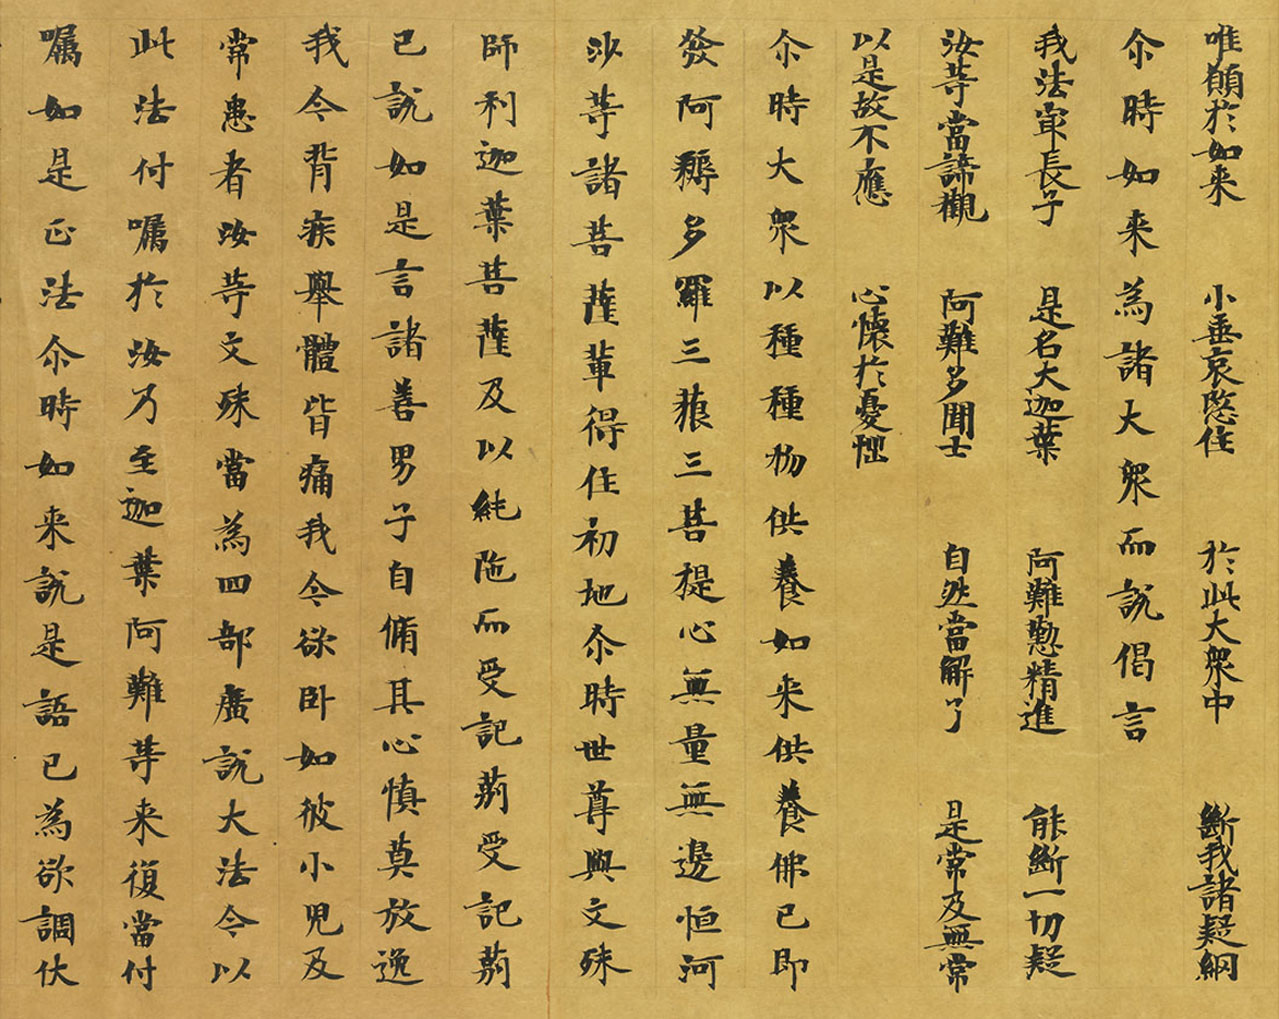 唯願於如来　小垂哀愍住　於此大衆中　斷我諸疑網
尒時如来為諸大衆而說偈言
我法㝡長子　是名大迦葉　阿難懃精進　能斷一切疑
汝等當諦觀　阿難多聞士　自然當解了　是常及無常
以是故不應　心懷於憂惱
尒時大衆以種種物供養如来供養佛已即
發阿耨多羅三藐三菩提心無量無邊恒河
沙等諸菩薩軰得住初地尒時世尊與文殊
師利迦葉菩薩及以純陁而受記莂受記莂
已說如是言諸善男子自脩其心慎莫放逸
我今背疾舉體皆痛我今欲卧如彼小兒及
常患者汝等文殊當為四部廣說大法今以
此法付嘱於汝乃至迦葉阿難等来復當付
嘱如是正法尒時如来說是語已為欲調伏